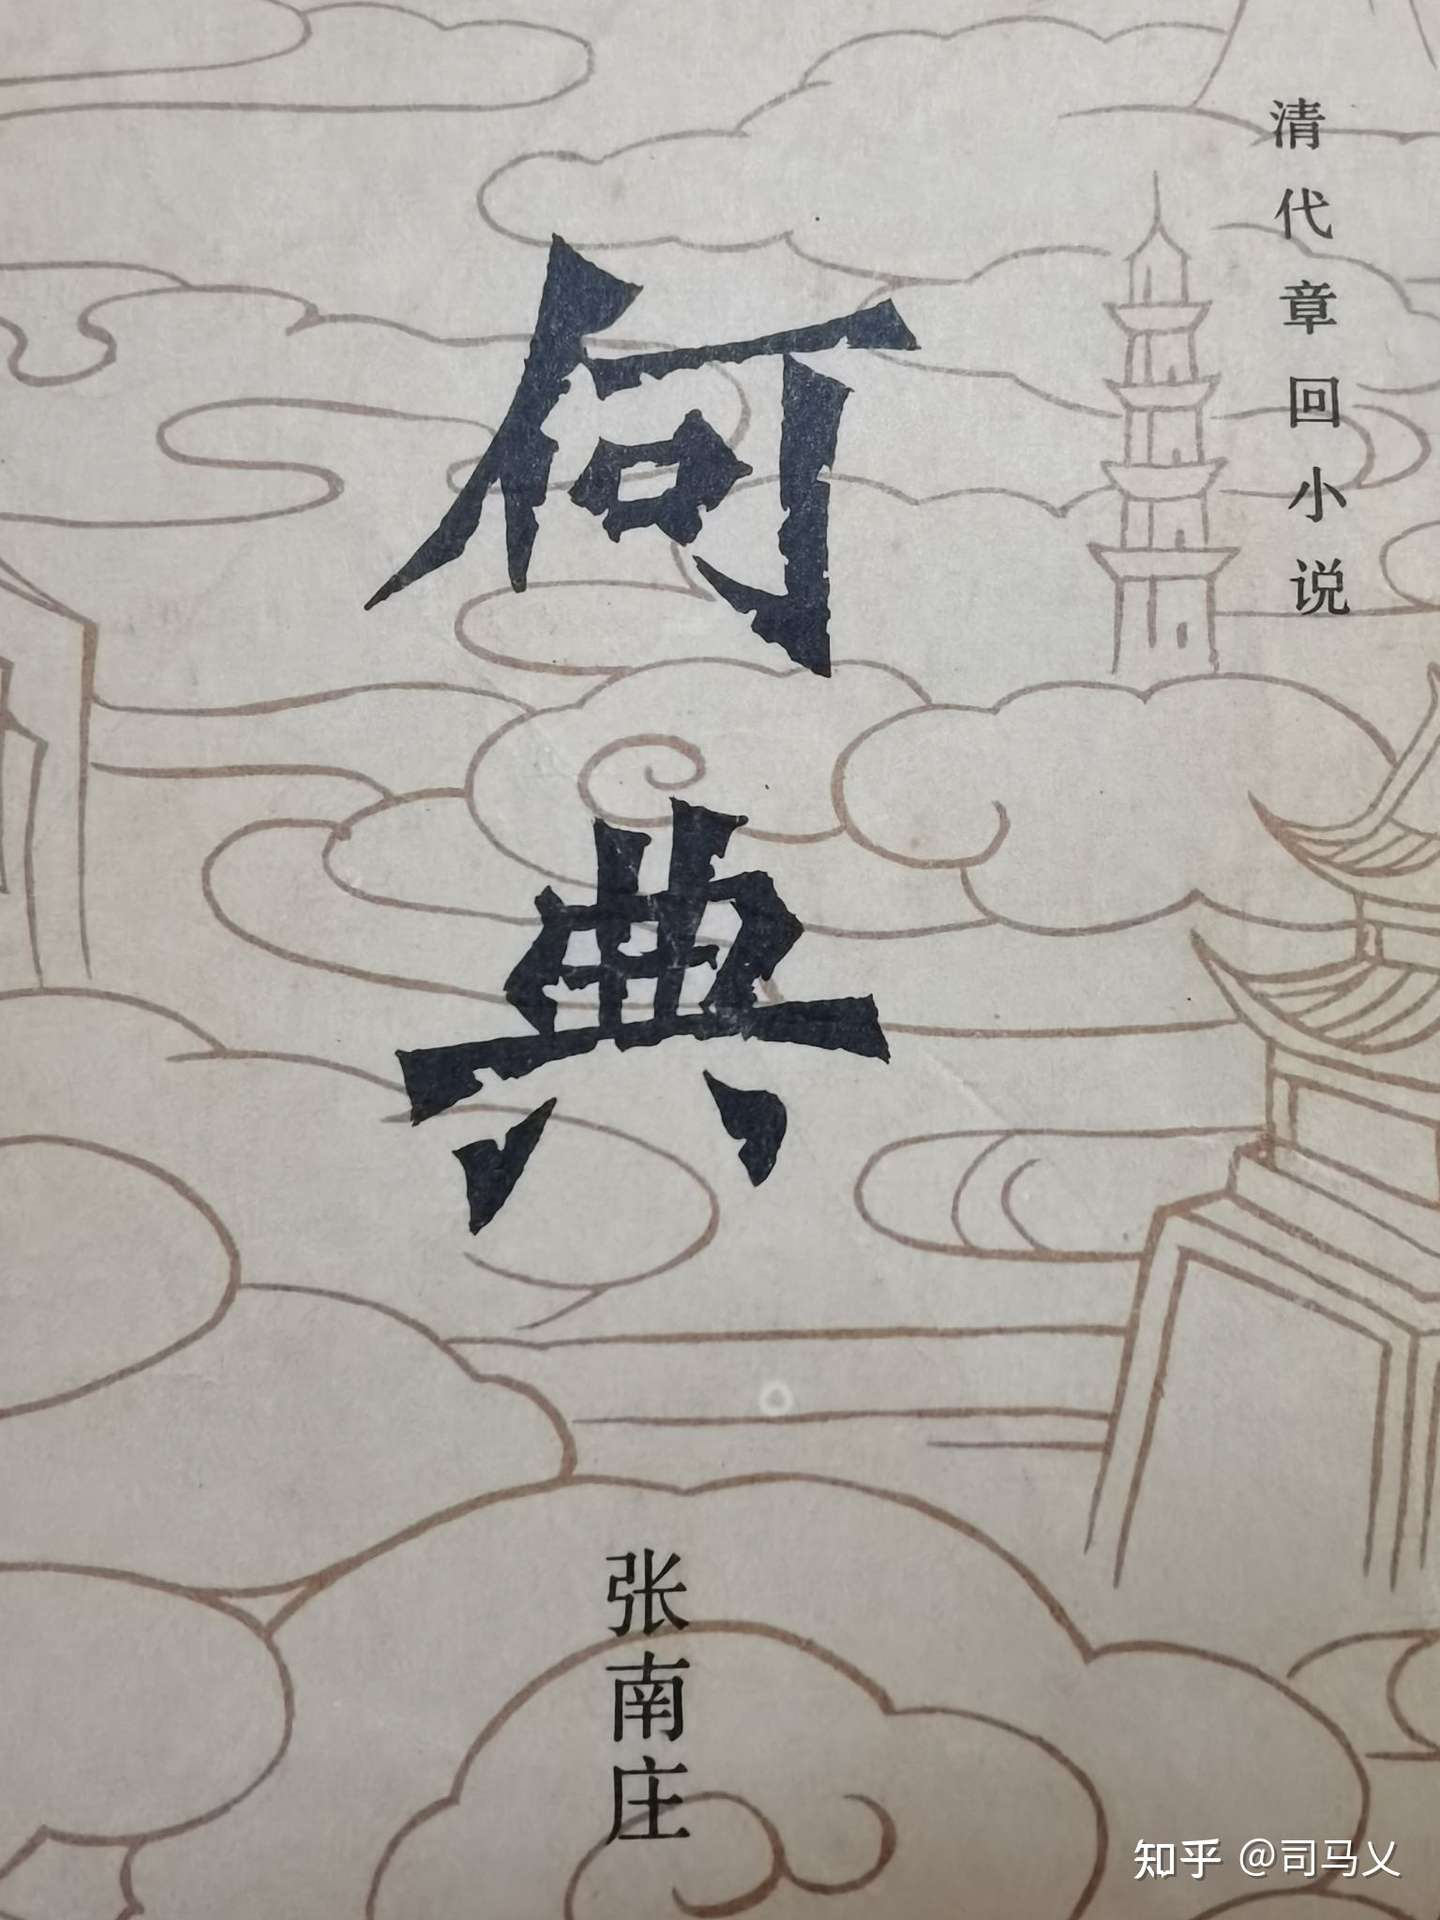 清代章回小说
何典
张南庄
知乎 @司马乂